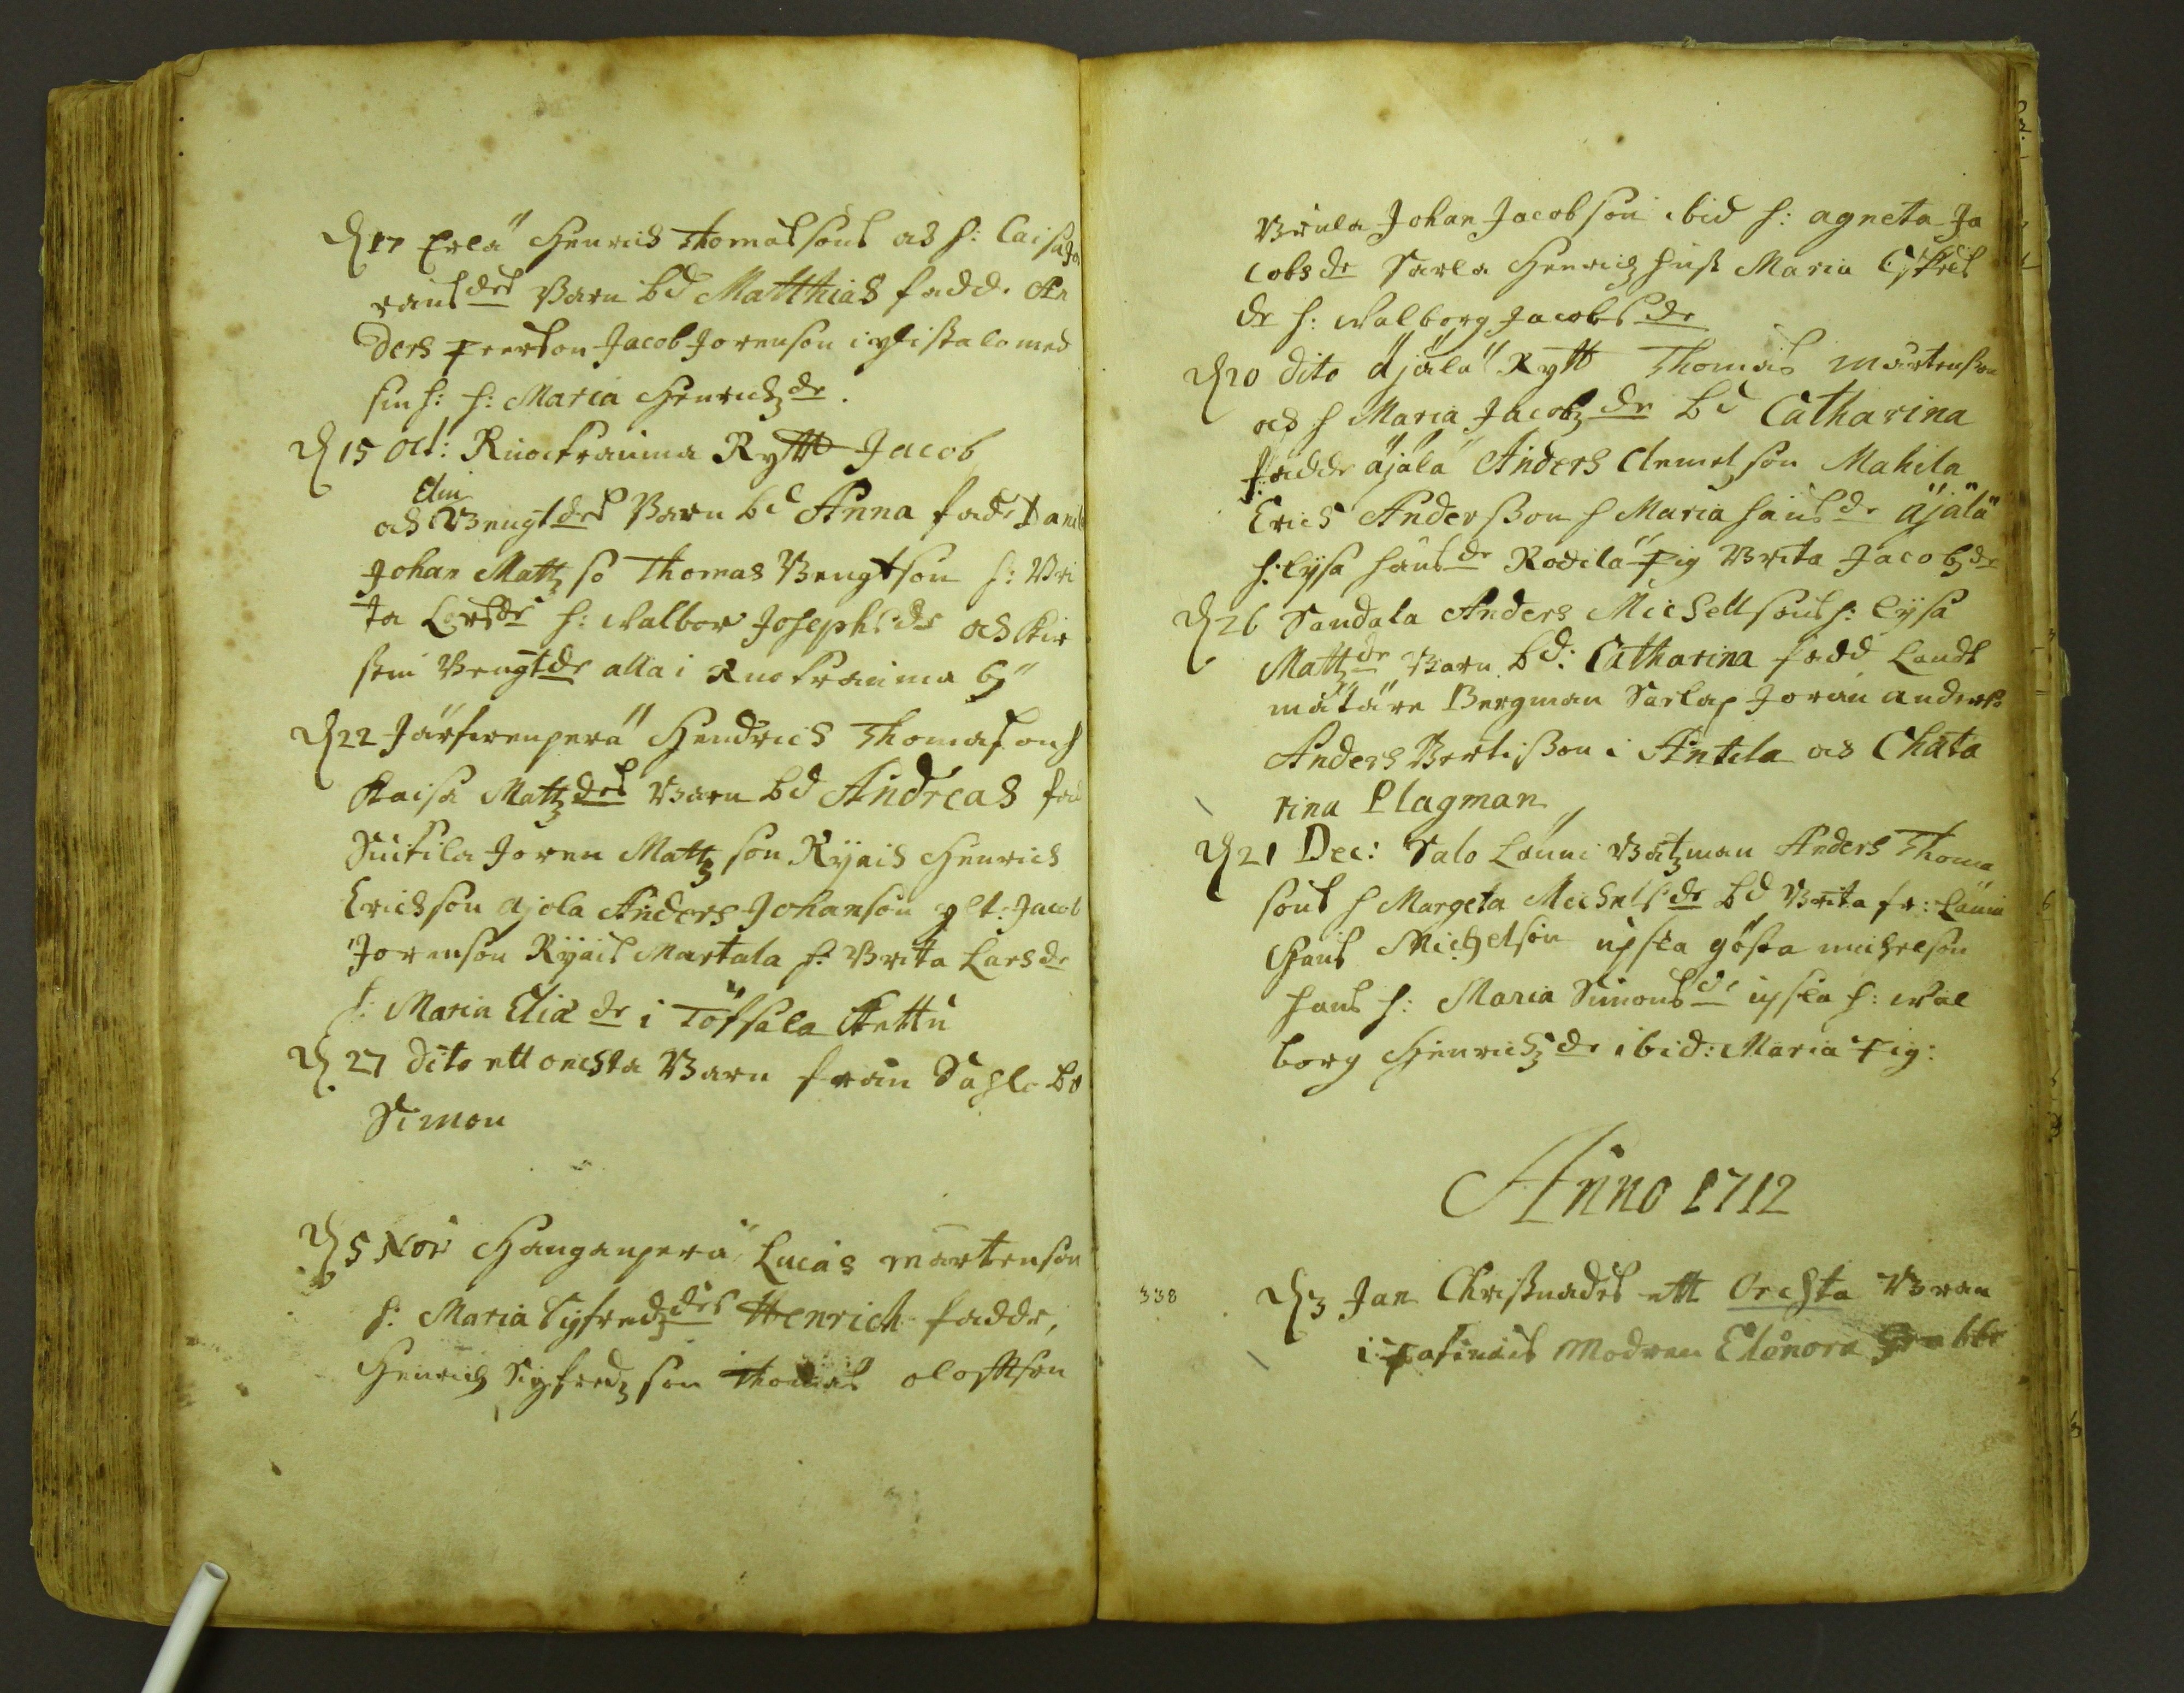 D 17 Erlä Henrich Thomassons och h: Caisa Jö
rans dr Barn bd Matthias fadd. An
ders peerson Jacob Jörenson i ylistalo med
sin h: h: Maria Henrichz dr.
D 15 Oct: Ruockrauma Rytt Jacob
Elin
och Bengt drs Barn bd Anna fadr
Johan Mattz so Thomas Bengtson h: Bri
ta Lars dr h: Walbor Josephs dr och Kir
stin Bengt dr alla i Ruokrauma by
D 22 Järfwenperä Hendrich Thomason h
Kaisa Mattz drs Barn bd Andreas fad
Suikila Jören Mattz son Ryjais Henrich
Erichson ajola Anders Johanson glt: Jacob
Jörenson Ryjais Martala h: Brita Lars dr
h: Maria Elia dr i Töfsala Kettu
D. 27 dito ett oechta Barn från Sahlo bd
Simon
D 5 Nov Hanganperä Lucas mårtenson
h: Maria Sigfredz drs Henrich fadde,
Henrich Sigfredz son Thomas oloffson
Johan Jacobson ibid h: agneta Ja
cobs dr Sarla Henrichz hust Maria
dr h: Walborg Jacobs dr
D 20 dito äjälä Rytt Thomas mårtenson
och h Maria Jacobz dr bd Catharina
fadde äjälä Anders Clemetson Mahila
Erich Anderson h Maria hans dr äjälä
h: Lysa hans dr Rodila pig Brita Jacobz dr
D 26 Sandala Anders Michellsons h: Lysa
Mattz dr Barn bd: Catharina fadd Landt
mätäre Bergman Sarlax Jöran anders
Anders Bertilson i Antila och Chata
rina Plagman
D 21 Dec: Salo Länni Båtzman Anders Thoma
sons h Margeta Michels dr bd Brita fr: Länni
Hans Michelson ipsla gösta michelson
hans h: Maria Simons dr ipsla h: Wal
borg Henrichz dr ibid: Maria pig:
Anno 1712
338
D 3 Jan Christnades ett Oechta Baran
i pasimais Modren Elönora Grabbe